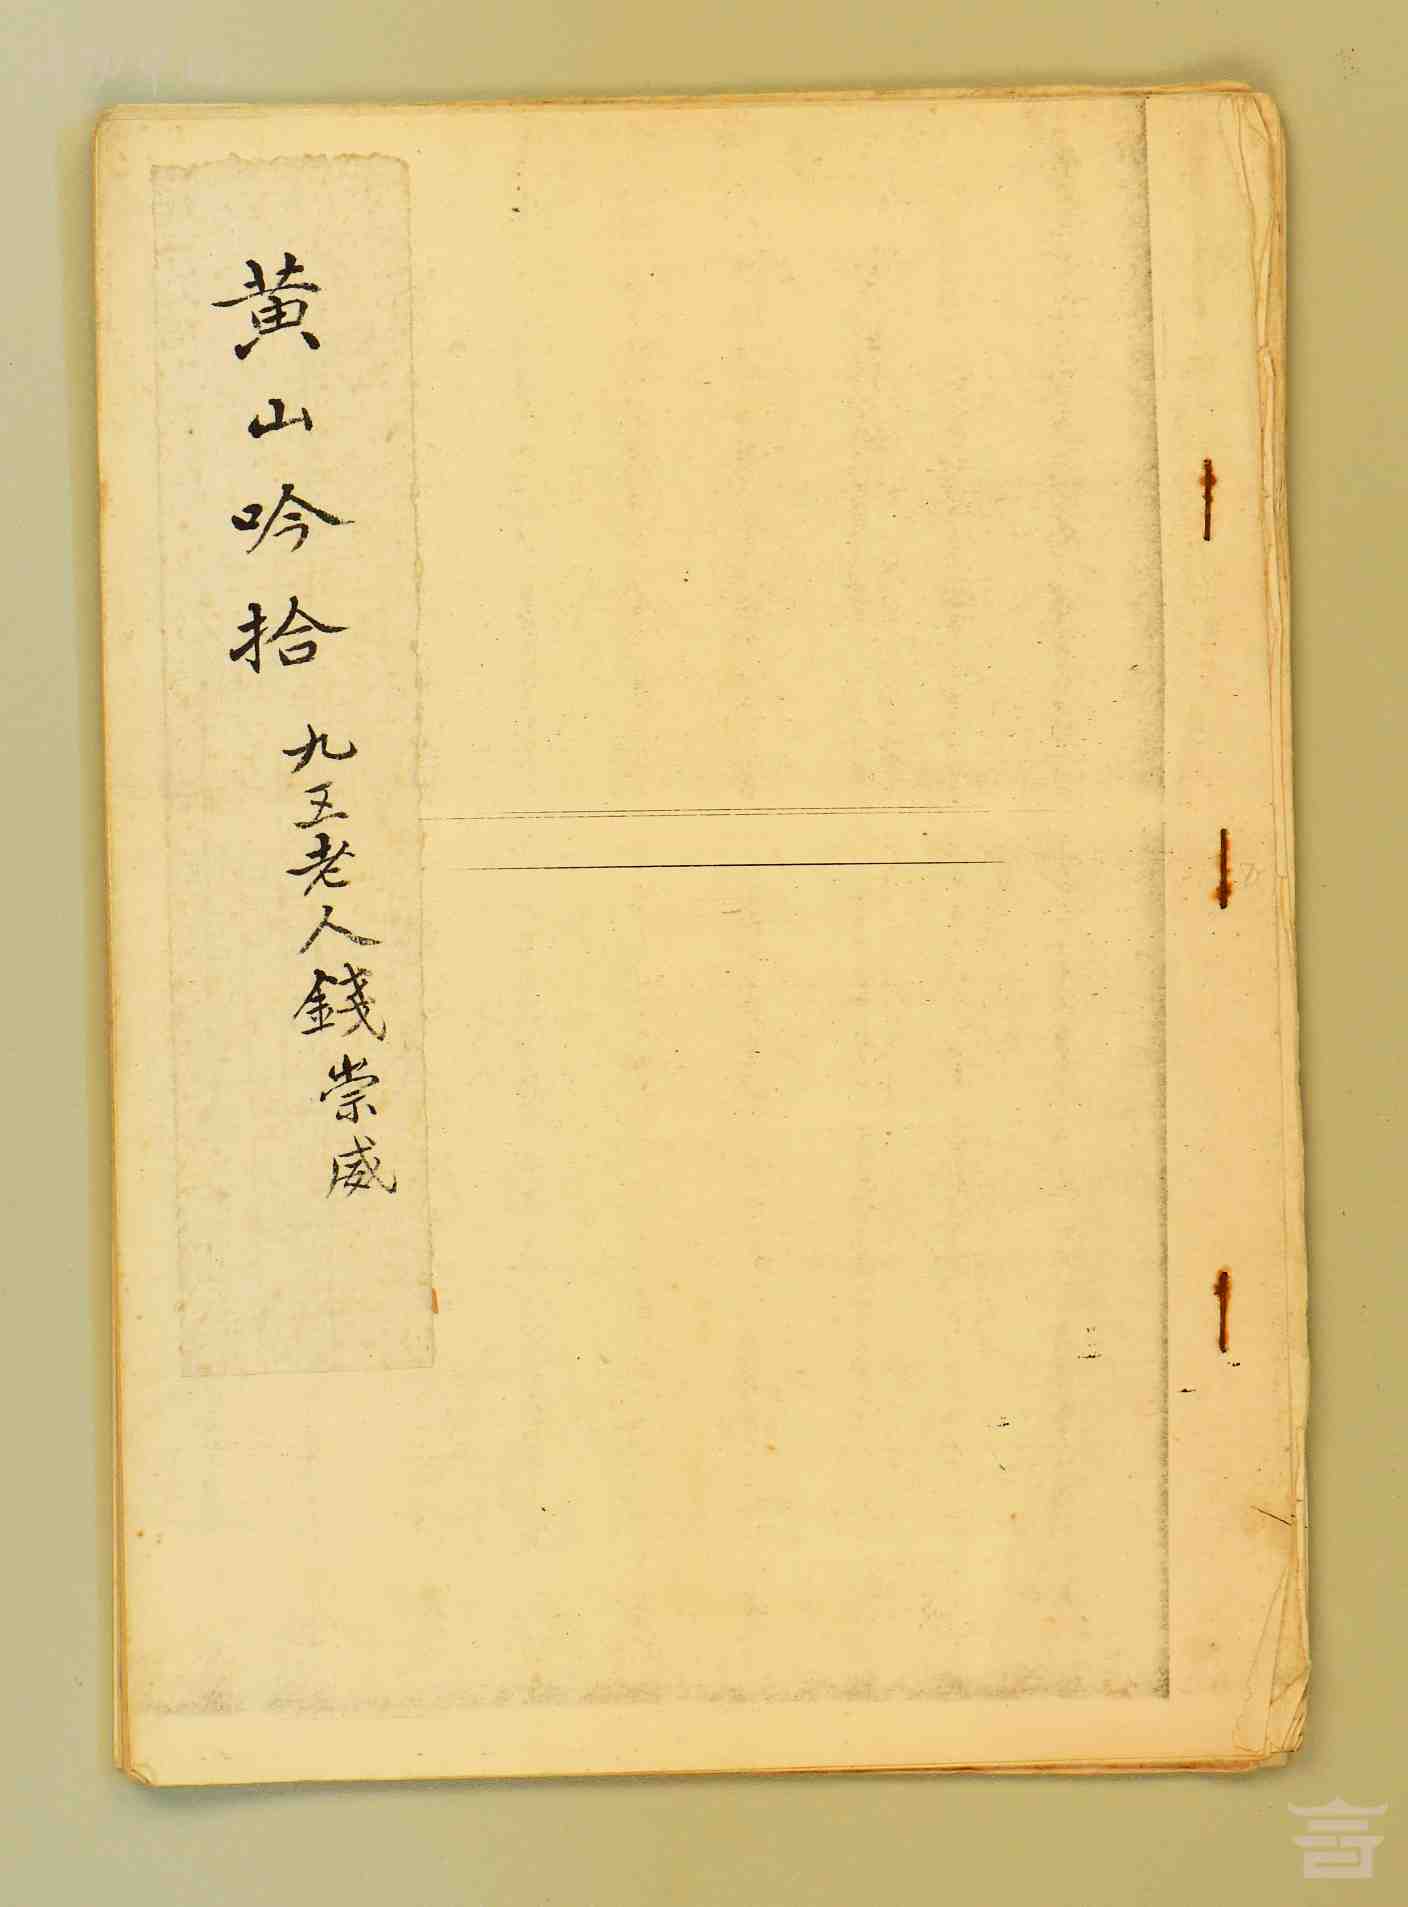 黄山吟拾
九五老人錢崇威